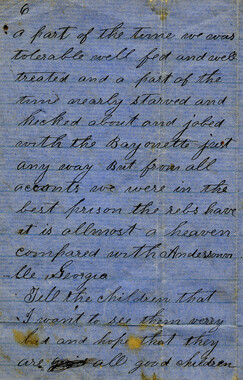 6
a part of the time we was
tolerable well fed and well
treated and a part of the
time nearly starved and
kicked about and jobed
with the Bayonette just
any way But from all
accants we were in the
best prison the rebs have
it is allmost a heaven
compared with Andersonvi
lle Georgia
Tell the children that
I want to see them verry
bad and hope that they
are all good children